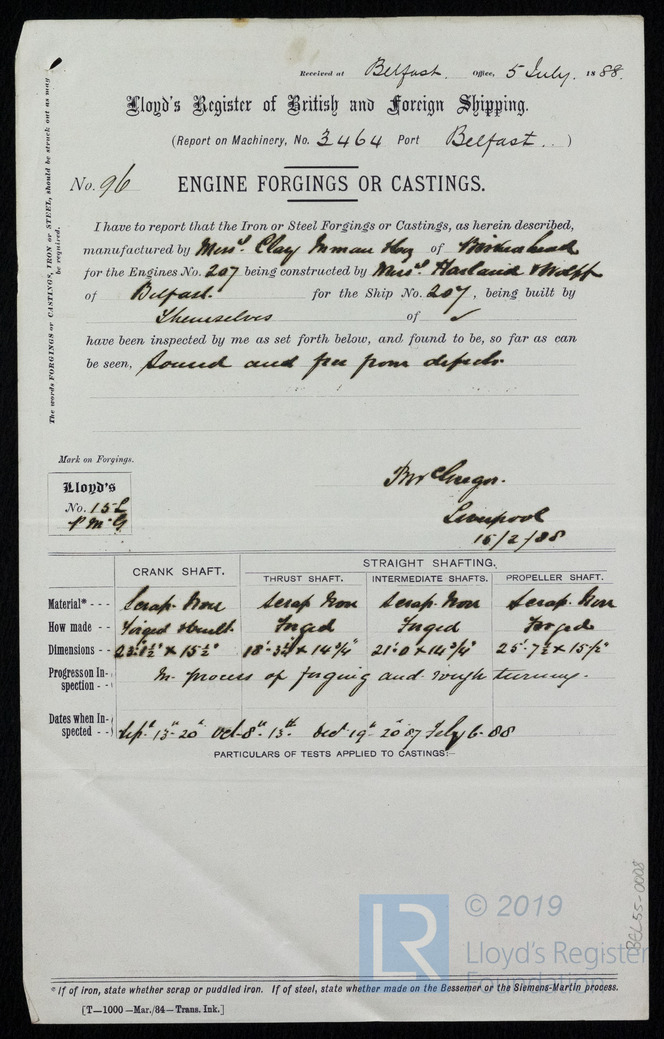 Received at Belfast. Office, 5 July. 1888.
Lloyd's Register of British and Foreign Shipping.
(Report on Machinery, No. 3464 Port Belfast.. )
No. 96 ENGINE FORGINGS OR CASTINGS.
The words FORGINGS or CASTINGS, IRON or STEEL, should be struck out as may be required.
I have to report that the Iron or Steel Forgings or Castings, as herein described,
manufactured by Messrs. Clay Inman of Birkenhead
for the Engines No. 207 being constructed by Messrs. Harland & Wolff
of Belfast. for the Ship No. 207, being built by
Themselves of ✓
have been inspected by me as set forth below, and found to be, so far as can
be seen, sound and free from defects.
Mark on Forgings.
Lloyd's
No. 15 L
P McG
P McGregor.
Liverpool
15/2/88
CRANK SHAFT. STRAIGHT SHAFTING.
THRUST SHAFT. INTERMEDIATE SHAFTS. PROPELLER SHAFT.
Material* - - - Scrap Iron Scrap Iron Scrap Iron Scrap Iron
How made - - Forged & built Forged Forged Forged
Dimensions - - 15½" 18'. 14¾" 21'.0 x 14¾" 25'.7½ x 15½"
Progress on Inspection - - In process of forging and rough turning.
Dates when Inspected - - Sept 13" 20" Oct 8" 13th. Decr 19" 20" 87 Feby 6-88
PARTICULARS OF TESTS APPLIED TO CASTINGS:—
BEL55-0008
© 2019
LR
Lloyd's Register
Foundation
*If of iron, state whether scrap or puddled iron. If of steel, state whether made on the Bessemer or the Siemens-Martin process.
[T—1000—Mar./84—Trans. Ink.]